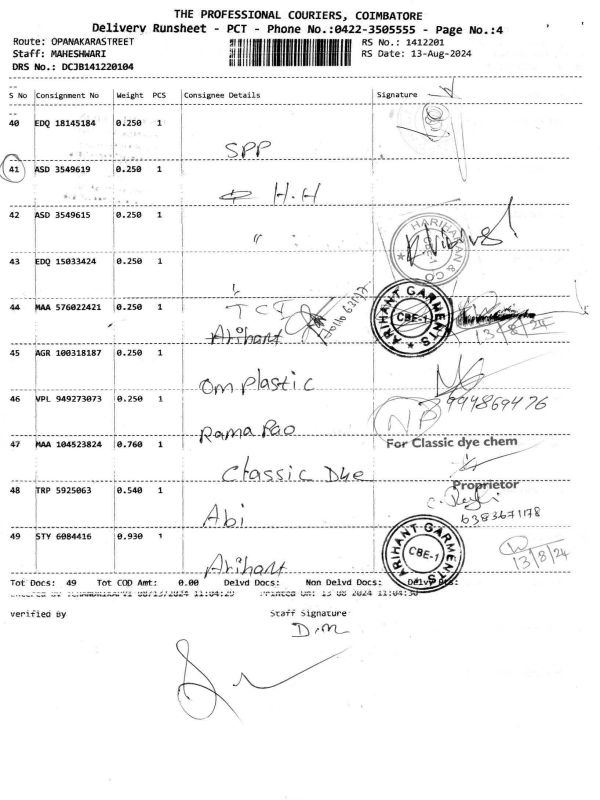 THE PROFESSIONAL COURIERS, COIMBATORE
Delivery Runsheet - PCT - Phone No.:0422-3505555 - Page No.:4
Route: OPANAKARASTREET RS No.: 1412201
Staff: MAHESHWARI RS Date: 13-Aug-2024
DRS No.: DCJB141220104
S No Consignment No Weight PCS Consignee Details Signature
40 EDQ 18145184 0.250 1
SPP
41 ASD 3549619 0.250 1
H.H
42 ASD 3549615 0.250 1
"
HARIHARAN & CO CBE-1
43 EDQ 15033424 0.250 1
TCI
ARIHANT GARMENTS CBE-1
44 MAA 576022421 0.250 1
Arihant 13/8/24
45 AGR 100318187 0.250 1
Om Plastic
46 VPL 949273073 0.250 1 NP 994869476
Rama Rao
47 MAA 104523824 0.760 1 For Classic dye chem
Classic Dye
Proprietor
48 TRP 5925063 0.540 1
6383671178
Abi
49 STY 6084416 0.930 1 ARIHANT GARMENTS CBE-1
13/8/24
Arihant
Tot Docs: 49 Tot COD Amt: 0.00 Delvd Docs: Non Delvd Docs: Delvd Wts:
08/13/2024 11:04:29 Printed On: 13 08 2024 11:04:30
verified By Staff Signature
D.M